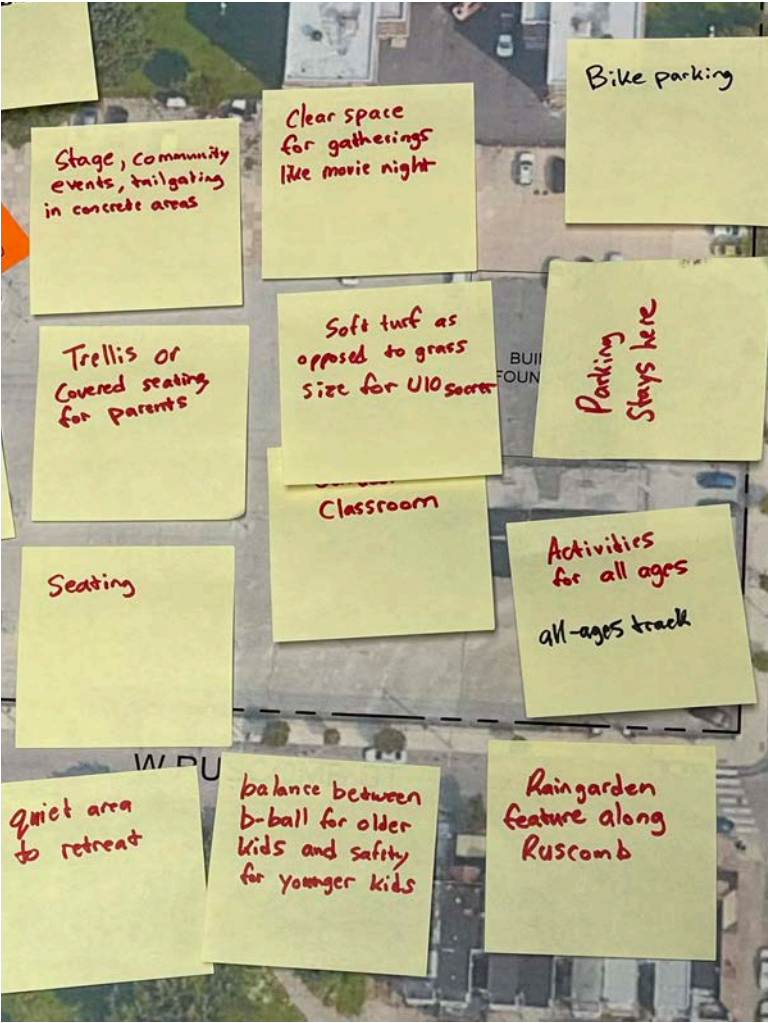 Stage, community
events, tailgating
in concrete areas
Clear space
for gatherings
like movie night
Bike parking
Trellis or
Covered seating
for parents
Soft turf as
opposed to grass
size for U10 soccer
BUI
FOUN
Parking
Stays here
Classroom
Seating
Activities
for all ages
all-ages track
W RU
quiet area
to retreat
balance between
b-ball for older
kids and safety
for younger kids
Raingarden
feature along
Ruscomb